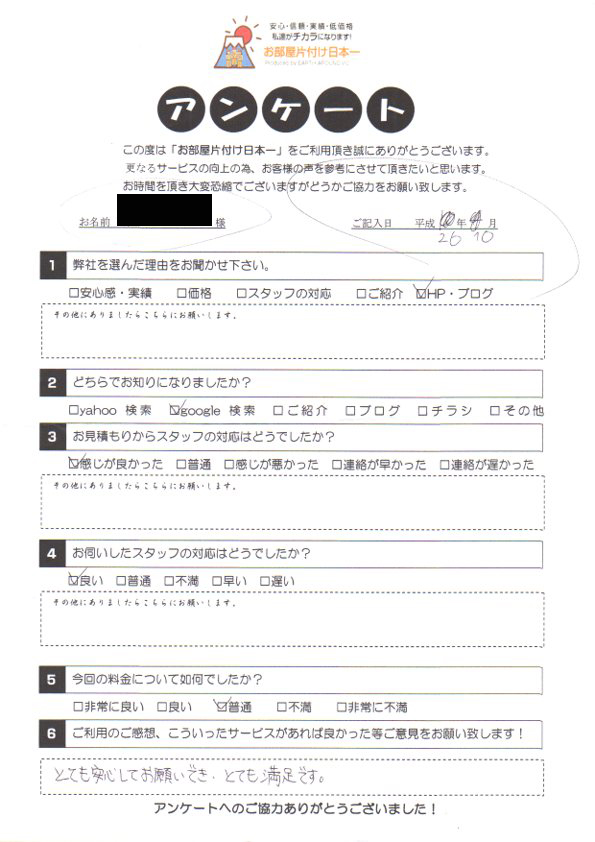 安心・信頼・実績・低価格
私達がチカラになります!
お部屋片付け日本一
Produced by EARTH AROUND VC
アンケート
この度は「お部屋片付け日本一」をご利用頂き誠にありがとうございます。
更なるサービスの向上の為、お客様の声を参考にさせて頂きたいと思います。
お時間を頂き大変恐縮でございますがどうかご協力をお願い致します。
お名前 様 ご記入日 平成 年 月
26 10
1 弊社を選んだ理由をお聞かせ下さい。
□安心感・実績 □価格 □スタッフの対応 □ご紹介 ☑HP・ブログ
その他にありましたらこちらにお願いします。
2 どちらでお知りになりましたか?
□yahoo 検索 ☑google 検索 □ご紹介 □ブログ □チラシ □その他
3 お見積もりからスタッフの対応はどうでしたか?
☑感じが良かった □普通 □感じが悪かった □連絡が早かった □連絡が遅かった
その他にありましたらこちらにお願いします。
4 お伺いしたスタッフの対応はどうでしたか?
☑良い □普通 □不満 □早い □遅い
その他にありましたらこちらにお願いします。
5 今回の料金について如何でしたか?
□非常に良い □良い ☑普通 □不満 □非常に不満
6 ご利用のご感想、こういったサービスがあれば良かった等ご意見をお願い致します!
とても安心してお願いでき、とても満足です。
アンケートへのご協力ありがとうございました!